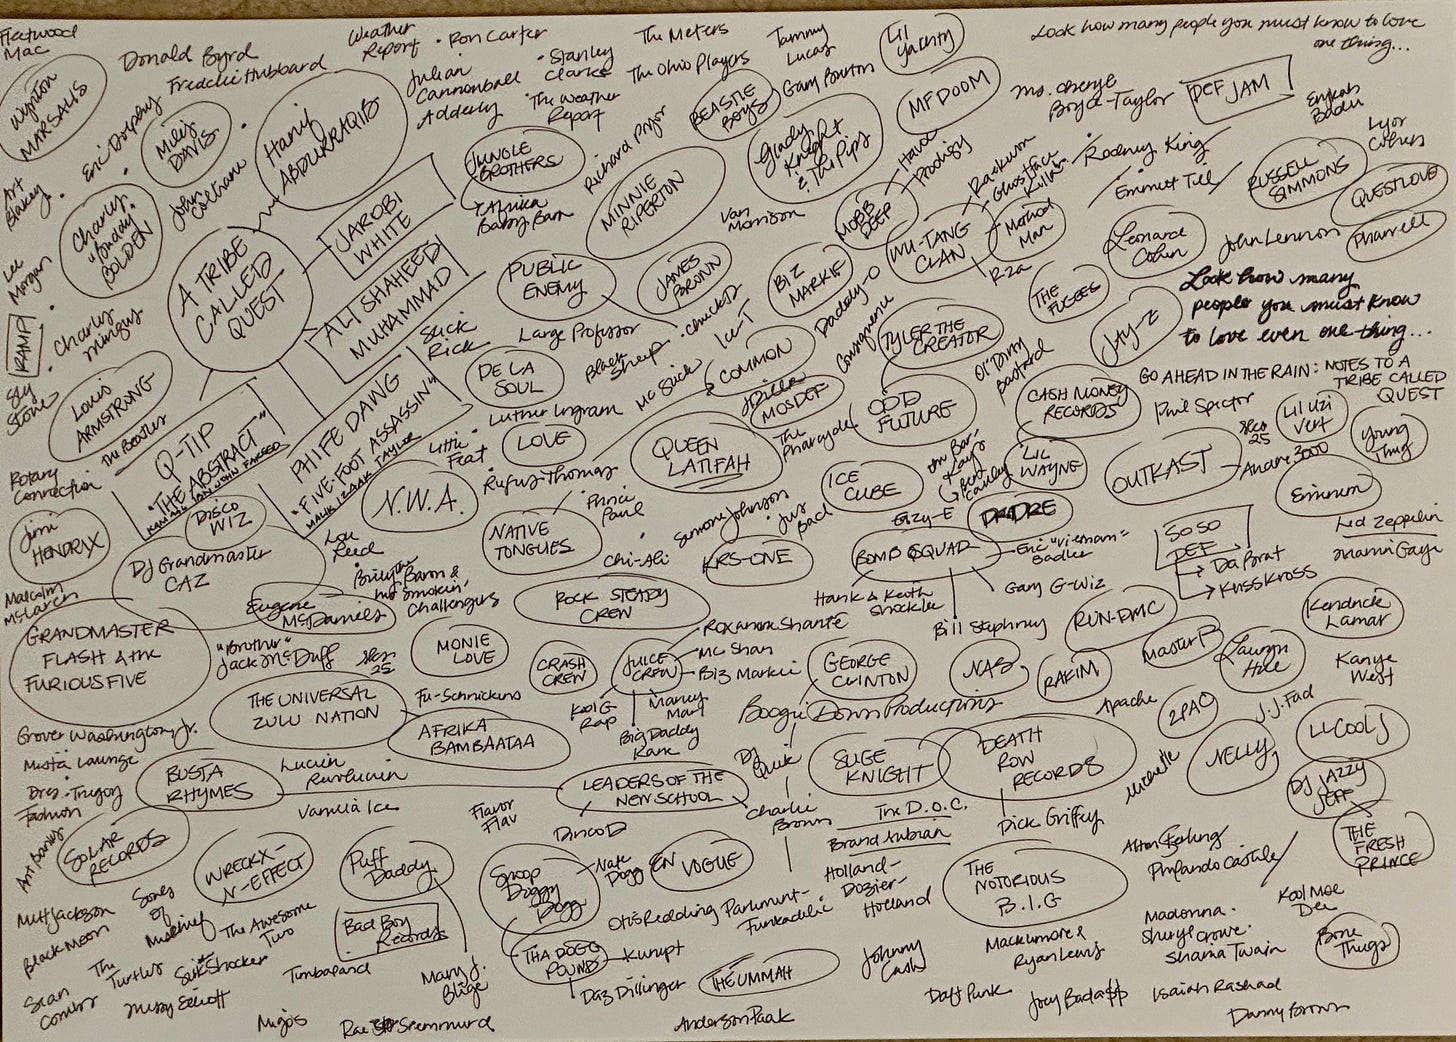 Fleetwood
Mac
Wynton
MARSALIS
Donald Byrd
Freddie Hubbard
Weather
Report
Ron Carter
Julian
Cannonball
Adderly
Stanley
Clarke
The Weather
Report
The Meters
The Ohio Players
Tammy
Lucas
Gary Burton
Lil
Yachty
Look how many people you must know to love
one thing...
Art
Blakey
Eric Dolphy
Miles
DAVIS
John
Coltrane
Hanif
ABDURAQIB
JUNGLE
BROTHERS
Afrika
Baby Bam
Richard Pryor
BEASTIE
Boys
MINNIE
RIPERTON
Gladys
Knight
& The Pips
MF DOOM
Havoc
Prodigy
MOBB
DEEP
Ms. Cheryl
Boyce-Taylor
DEF JAM
Erykah
Badu
Lyor
Cohen
Charles
"buddy"
BOLDEN
Lee
Morgan
RAMP
Charles
Mingus
Sly
Stone
Louis
ARMSTRONG
The Beatles
A TRIBE
CALLED
QUEST
JAROBI
WHITE
ALI SHAHEED
MUHAMMAD
PHIFE DAWG
"FIVE-FOOT ASSASSIN"
MALIK IZAAK TAYLOR
Q-TIP
"THE ABSTRACT"
PUBLIC
ENEMY
JAMES
BROWN
Van
Morrison
BIZ
MARKIE
WU-TANG
CLAN
Raekwon
Ghostface
Killah
Method
Man
RZA
Rodney King
Emmett Till
RUSSELL
SIMMONS
QUESTLOVE
Pharrell
Leonard
Cohen
John Lennon
Look how many
people you must know
to love even one thing...
THE
FUGEES
Jay-Z
Slick
Rick
Large Professor
Black
Sheep
Chuck D
Ice-T
Daddy-O
Consequence
TYLER THE
CREATOR
Ol' Dirty
Bastard
GO AHEAD IN THE RAIN: NOTES TO A
TRIBE CALLED
QUEST
DE LA
SOUL
Luther Ingram
MC Slick
COMMON
J Dilla
MOS DEF
The
Pharcyde
ODD
FUTURE
CASH MONEY
RECORDS
Phil Spector
Lil Uzi
Vert
Young
Thug
Rotary
Connection
Jimi
HENDRIX
DISCO
WIZ
DJ Grandmaster
CAZ
Little
Feat
LOVE
Rufus Thomas
N.W.A.
QUEEN
LATIFAH
ICE
CUBE
LIL
WAYNE
OUTKAST
Andre 3000
Eminem
Lou
Reed
NATIVE
TONGUES
Prince
Paul
Chi-Ali
Simone Johnson
KRS-ONE
Eazy-E
DR DRE
BOMB SQUAD
Eric "Vietnam"
Sadler
Gary G-Wiz
Hank & Keith
Shocklee
Bill Stephney
SO SO
DEF
Da Brat
Kriss Kross
Led Zeppelin
Marvin Gaye
Malcolm
McLaren
GRANDMASTER
FLASH & the
FURIOUS FIVE
Eugene
McDaniels
Baron &
Smokin'
Challengers
"Brother"
Jack McDuff
MONIE
LOVE
ROCK STEADY
CREW
CRASH
CREW
JUICE
CREW
Roxanne Shanté
MC Shan
Biz Markie
Marley
Marl
Big Daddy
Kane
Kool G
Rap
GEORGE
CLINTON
NAS
RAKIM
RUN-DMC
Master P
Lauryn
Hill
Kendrick
Lamar
Kanye
West
THE UNIVERSAL
ZULU NATION
Fu-Schnickens
AFRIKA
BAMBAATAA
Boogie Down Productions
Apache
2PAC
J.J. Fad
LL COOL J
Grover Washington, Jr.
Mista Lawnge
Dres - Trugoy
Fashion
BUSTA
RHYMES
Vanilla Ice
LEADERS OF THE
NEW SCHOOL
Charlie
Brown
Dinco D
DJ
Quik
SUGE
KNIGHT
DEATH
ROW
RECORDS
Michel'le
NELLY
DJ JAZZY
JEFF
THE
FRESH
PRINCE
The D.O.C.
Brand Nubian
Dick Griffey
SOLAR
RECORDS
WRECKX-
N-EFFECT
Puff
Daddy
Flavor
Flav
Snoop
Doggy
Dogg
Nate
Dogg
EN VOGUE
Holland-
Dozier-
Holland
THE
NOTORIOUS
B.I.G
Alton Sterling
Philando Castile
Milt Jackson
Black Moon
Sean
Combs
Sons
of
Mischief
The
Turtles
The Awesome
Two
Sukshocker
Missy Elliott
Bad Boy
Records
Timbaland
Mary J.
Blige
THA DOGG
POUND
Kurupt
Daz Dillinger
Otis Redding
Parliment-
Funkadelic
THE UMMAH
Johnny
Cash
Macklemore &
Ryan Lewis
Madonna
Sheryl Crowe
Shania Twain
Kool Moe
Dee
Bone
Thugs
Migos
Rae Sremmurd
Anderson Paak
Daft Punk
Joey Bada$$
Isaiah Rashad
Danny Brown